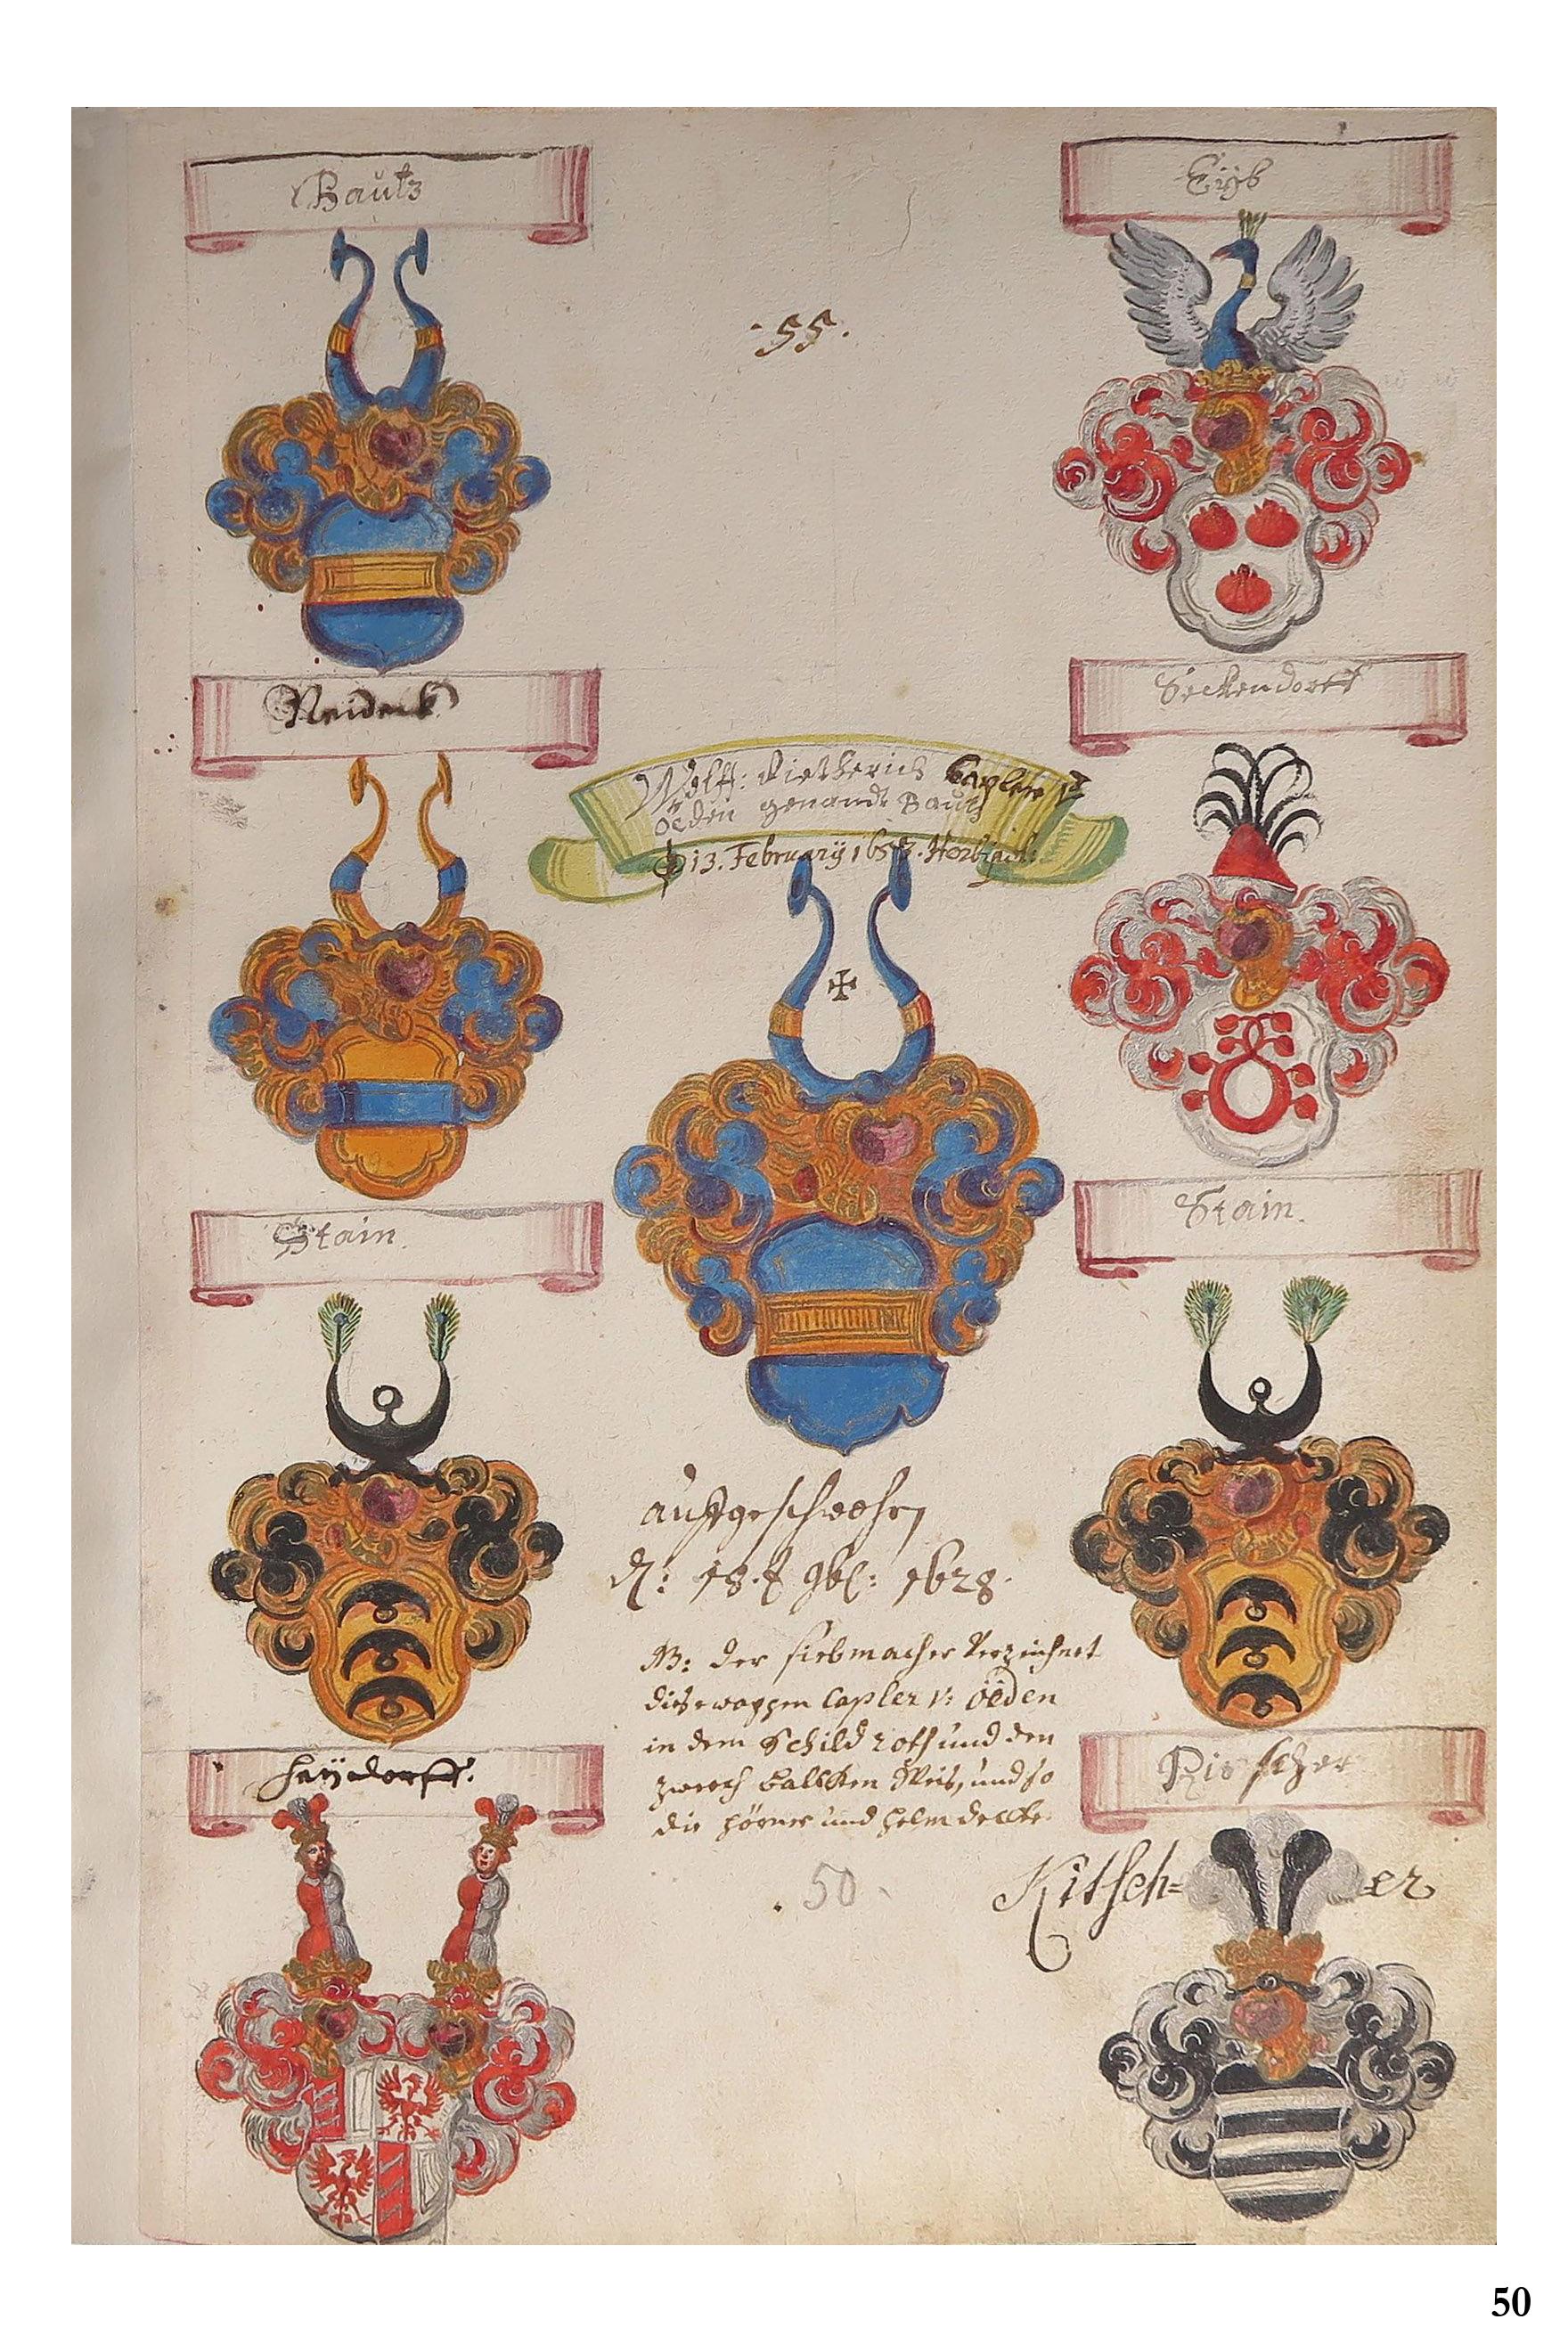 Bautz
Eÿb
·55.
Neideck
Seckendorff
Wolff: Dietherich Capler V:
öeden genandt Bautz
13. February 1653. Horb
Stain.
Stain.
auffgeschworn
d: 18. 9b: 1628.
NB: der siebmacher Verzeichnet
dises wappen Capler v: öeden
in dem Schild roth und den
zwerch balkhen Weis, und so
die hörner und helm deckhe.
Haÿdorff.
Kitscher
. 50
Kitsch= er
50